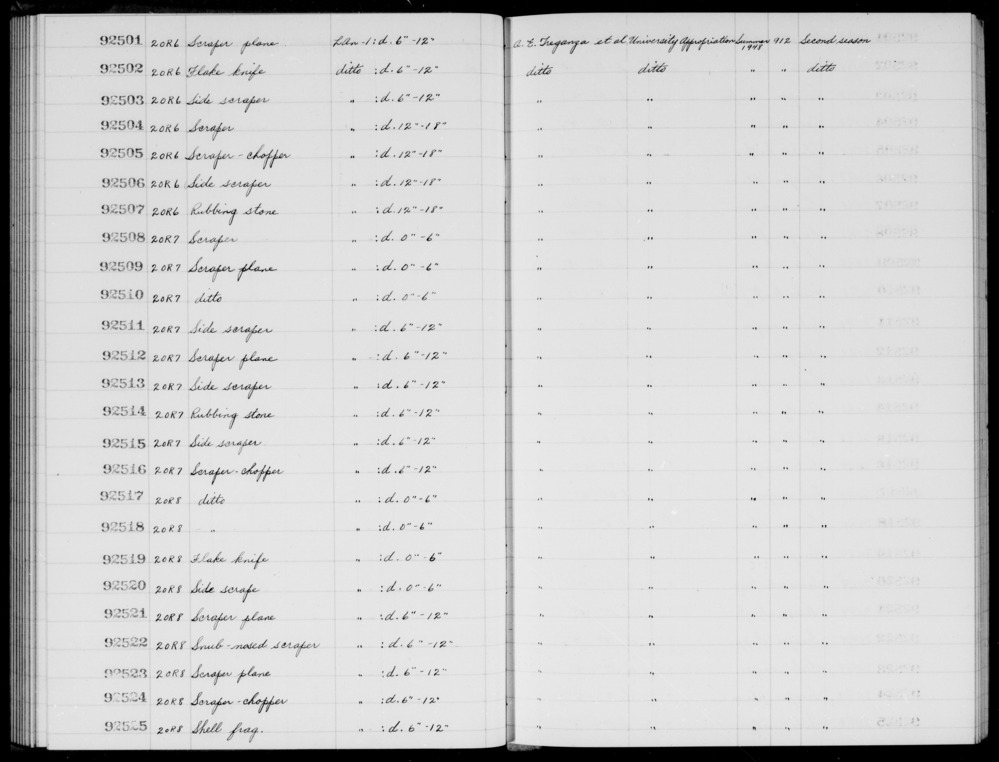 92501 20R6 Scraper plane LAn-1:d. 6"-12" A. E. Treganza et al University Appropriation Summer 1948 912 Second season
92502 20R6 Flake knife ditto :d. 6"-12" ditto ditto " " ditto
92503 20R6 Side scraper " :d. 6"-12" " " " " "
92504 20R6 Scraper " :d. 12"-18" " " " " "
92505 20R6 Scraper-chopper " :d. 12"-18" " " " " "
92506 20R6 Side scraper " :d. 12"-18" " " " " "
92507 20R6 Rubbing stone " :d. 12"-18" " " " " "
92508 20R7 Scraper " :d. 0"-6" " " " " "
92509 20R7 Scraper plane " :d. 0"-6" " " " " "
92510 20R7 ditto " :d. 0"-6" " " " " "
92511 20R7 Side scraper " :d. 6"-12" " " " " "
92512 20R7 Scraper plane " :d. 6"-12" " " " " "
92513 20R7 Side scraper " :d. 6"-12" " " " " "
92514 20R7 Rubbing stone " :d. 6"-12" " " " " "
92515 20R7 Side scraper " :d. 6"-12" " " " " "
92516 20R7 Scraper-chopper " :d. 6"-12" " " " " "
92517 20R8 ditto " :d. 0"-6" " " " " "
92518 20R8 " " :d. 0"-6" " " " " "
92519 20R8 Flake knife " :d. 0"-6" " " " " "
92520 20R8 Side scrape " :d. 0"-6" " " " " "
92521 20R8 Scraper plane " :d. 6"-12" " " " " "
92522 20R8 Snub-nosed scraper " :d. 6"-12" " " " " "
92523 20R8 Scraper plane " :d. 6"-12" " " " " "
92524 20R8 Scraper-chopper " :d. 6"-12" " " " " "
92525 20R8 Shell frag. " :d. 6"-12" " " " " "